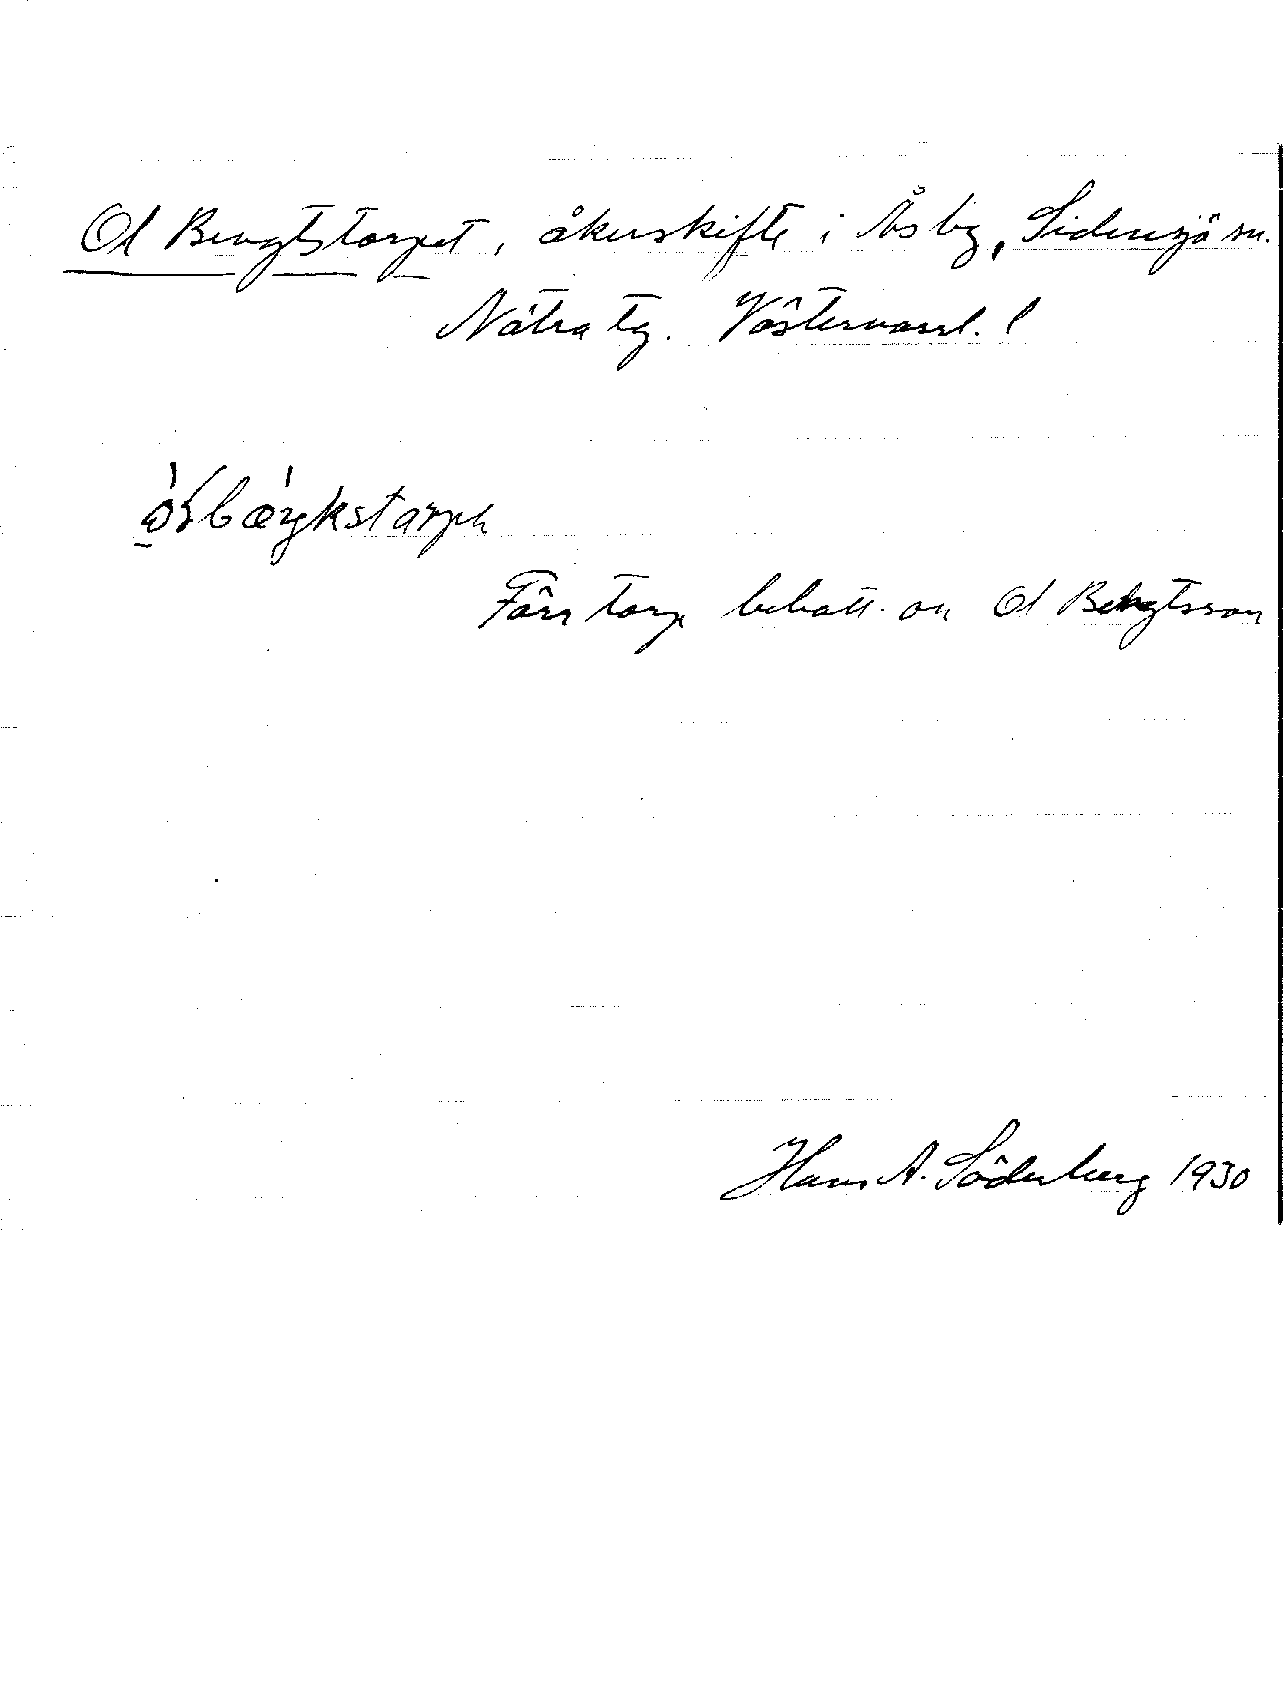 Ol Bengtstorpet, åkerskifte i Ås by, Sidensjö sn.
Nätra tg. Västernorrl. l
Förr torp bebott av Ol Bengtsson
Hans A. Söderberg 1930